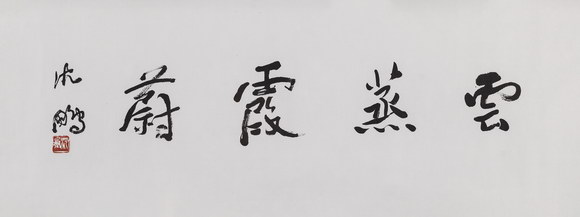 雲蒸霞蔚
沈鵬